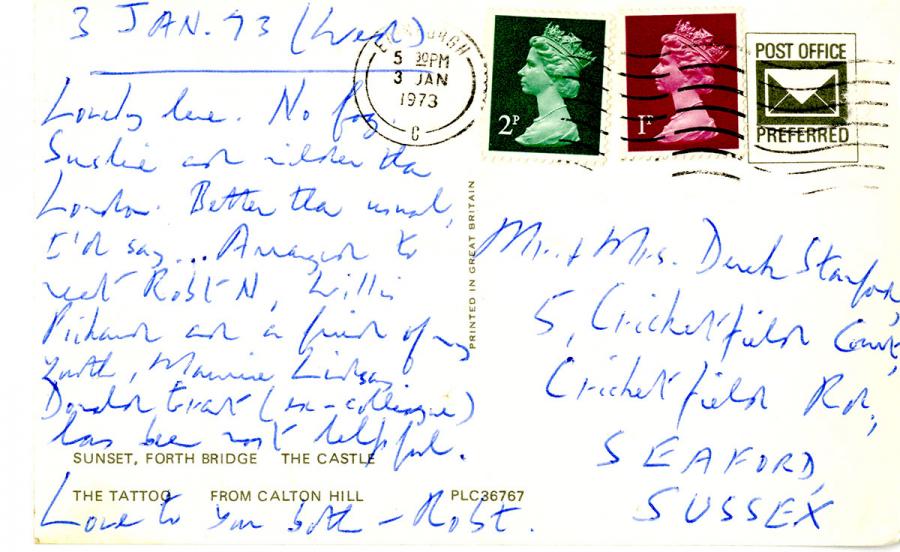 3 JAN. 73 (Wed)
EDINBURGH
5 30PM
3 JAN
1973
C
2P
1P
POST OFFICE
PREFERRED
Lovely here. No fog.
Sunshine and milder than
London. Better than usual,
I'd say... Arranged to
meet Robt N, Willis
Pickard and a friend of my
youth, Maurice Lindsay.
Donald Grant (ex-colleague)
has been most helpful.
SUNSET, FORTH BRIDGE THE CASTLE
THE TATTOO FROM CALTON HILL PLC36767
Love to you both - Robt.
PRINTED IN GREAT BRITAIN
Mr. + Mrs. Derek Stanford,
5, Cricketfield Court,
Cricketfield Rd.,
SEAFORD,
SUSSEX